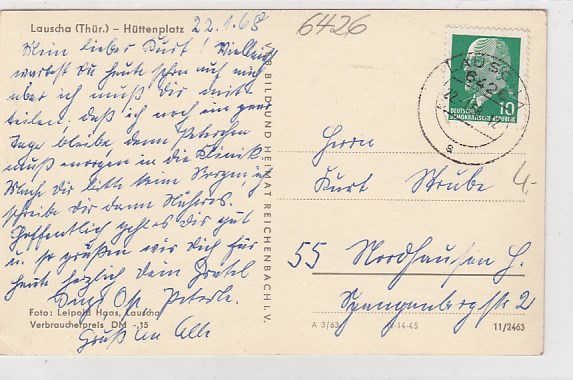 Lauscha (Thür.) – Hüttenplatz
22.1.68
6426
Mein lieber Kurt! Vielleicht
wartest du heute schon auf mich
aber ich muß dir mit-
teilen, daß ich noch ein paar
Tage bleibe, denn
muß morgen in die Klinik.
Mach dir bitte keine Sorgen, ich
schreibe dir dann Näheres.
Hoffentlich geht es dir gut
u. so grüßen wir dich für
heute herzlich dein
Gruß an Alle
Foto: Leipold Haas, Lauscha
Verbraucherpreis DM -,15
BILD UND HEIMAT REICHENBACH i. V.
LAUSCHA
642
10
DEUTSCHE
DEMOKRATISCHE REPUBLIK
Herrn
Kurt Strube
4,-
55 Nordhausen H.
Spangenbergstr 2
A 3/63
-14-45
11/2463